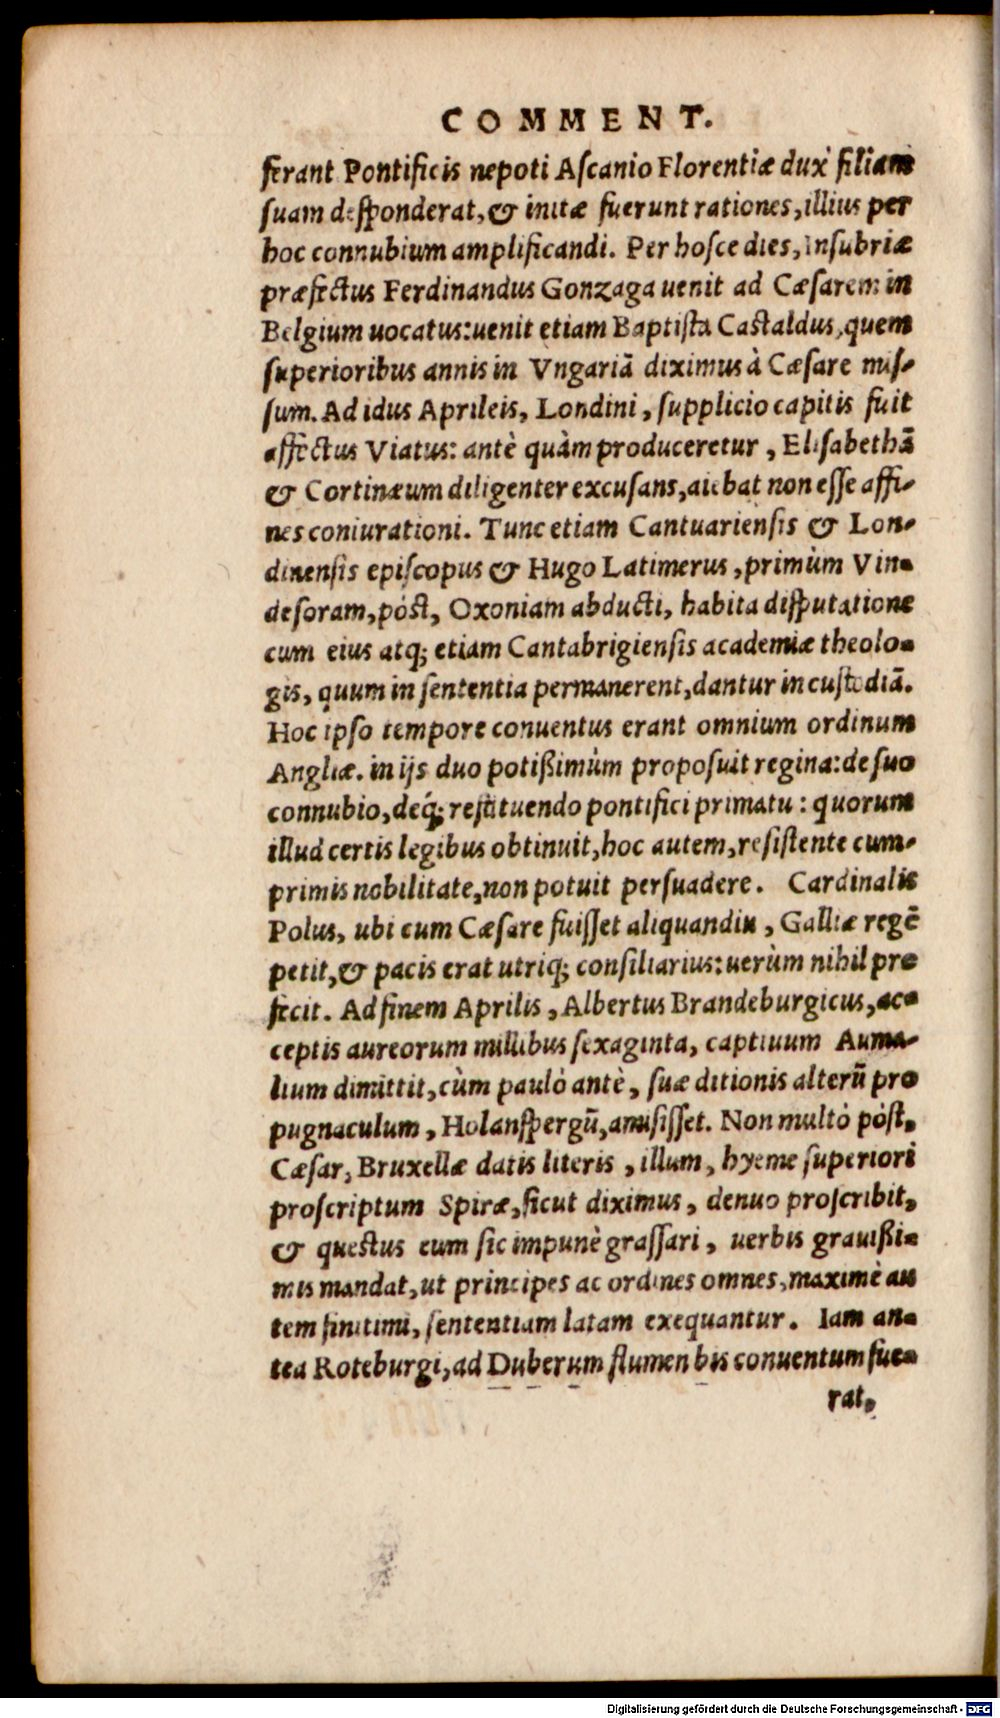 COMMENT.
ferant Pontificis nepoti Ascanio Florentiæ dux filiam
suam desponderat, & initæ fuerunt rationes, illius per
hoc connubium amplificandi. Per hosce dies, Insubriæ
præfectus Ferdinandus Gonzaga uenit ad Cæsarem in
Belgium uocatus: uenit etiam Baptista Castaldus, quem
superioribus annis in Vngariã diximus à Cæsare mis-
sum. Ad idus Aprileis, Londini, supplicio capitis fuit
affectus Viatus: antè quàm produceretur, Elisabethã
& Cortinæum diligenter excusans, aiebat non esse affi-
nes coniurationi. Tunc etiam Cantuariensis & Lon-
dinensis episcopus & Hugo Latimerus, primùm Vin-
desoram, pòst, Oxoniam abducti, habita disputatione
cum eius atq; etiam Cantabrigiensis academiæ theolo-
gis, quum in sententia permanerent, dantur in custodiã.
Hoc ipso tempore conuentus erant omnium ordinum
Angliæ. in ijs duo potißimùm proposuit regina: de suo
connubio, deq́; restituendo pontifici primatu: quorum
illud certis legibus obtinuit, hoc autem, resistente cum-
primis nobilitate, non potuit persuadere. Cardinalis
Polus, ubi cum Cæsare fuisset aliquandiu, Galliæ regẽ
petit, & pacis erat utriq; consiliarius: uerùm nihil pro
fecit. Ad finem Aprilis, Albertus Brandeburgicus, ac-
ceptis aureorum millibus sexaginta, captiuum Auma-
lium dimittit, cùm paulò antè, suæ ditionis alterũ pro
pugnaculum, Holanspergũ, amisisset. Non multò pòst,
Cæsar, Bruxellæ datis literis, illum, hyeme superiori
proscriptum Spiræ, sicut diximus, denuo proscribit,
& questus eum sic impunè grassari, uerbis grauißi-
mis mandat, ut principes ac ordines omnes, maximè au
tem finitimi, sententiam latam exequantur. Iam an-
tea Roteburgi, ad Duberum flumen bis conuentum fue-
rat,
Digitalisierung gefördert durch die Deutsche Forschungsgemeinschaft - DFG